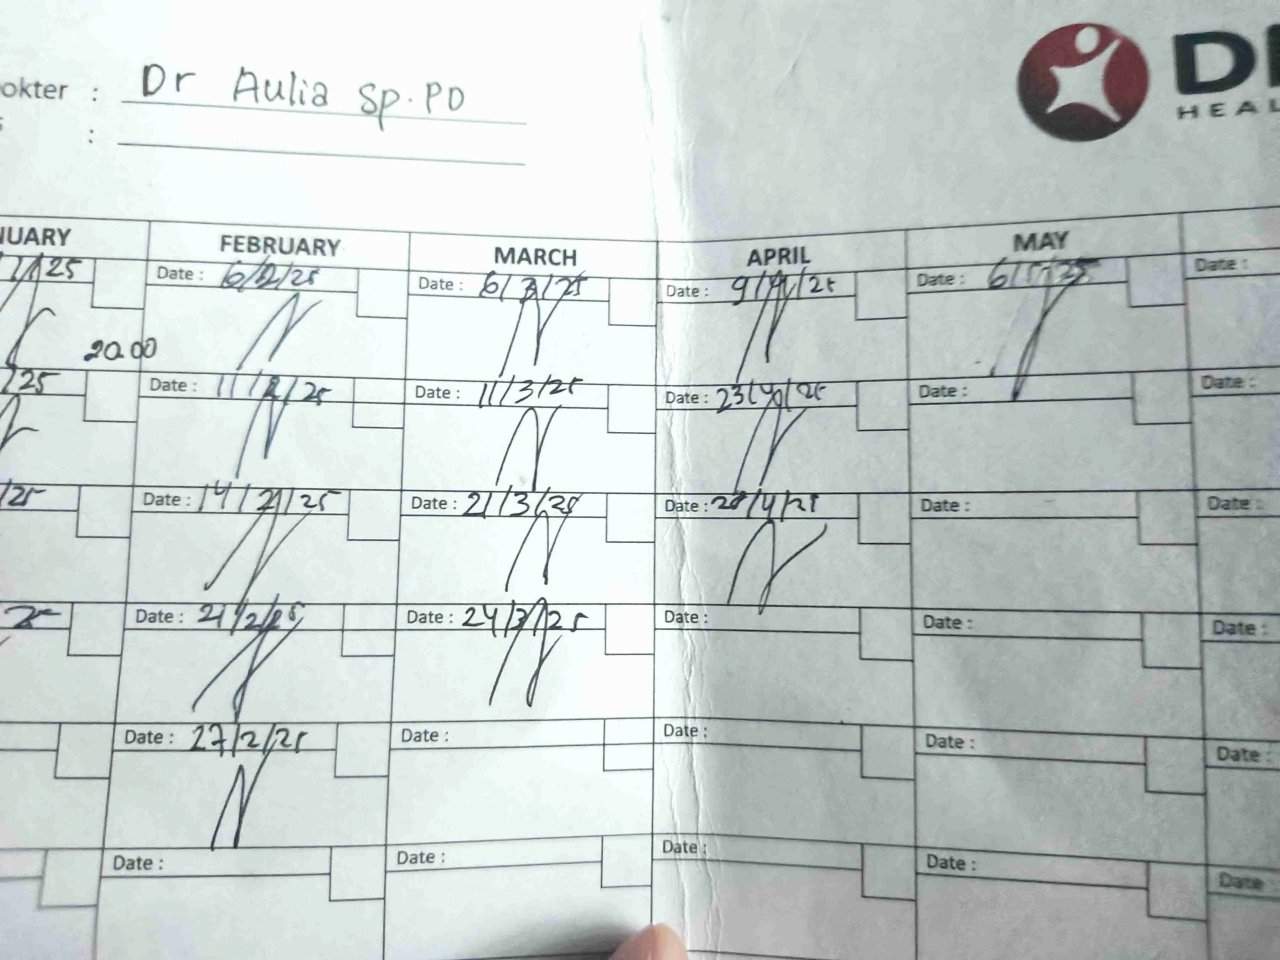 okter : Dr Aulia Sp.PD
:
DI
HEAL
NUARY FEBRUARY MARCH APRIL MAY
/1/25 Date : 6/2/25 Date : 6/3/25 Date : 9/4/25 Date : 6/5/25 Date :
20.00
/25 Date : 11/2/25 Date : 11/3/25 Date : 23/4/25 Date : Date :
/25 Date : 14/2/25 Date : 21/3/25 Date : 28/4/25 Date : Date :
25 Date : 21/2/25 Date : 24/3/25 Date : Date : Date :
Date : 27/2/25 Date : Date : Date : Date :
Date : Date : Date : Date : Date :